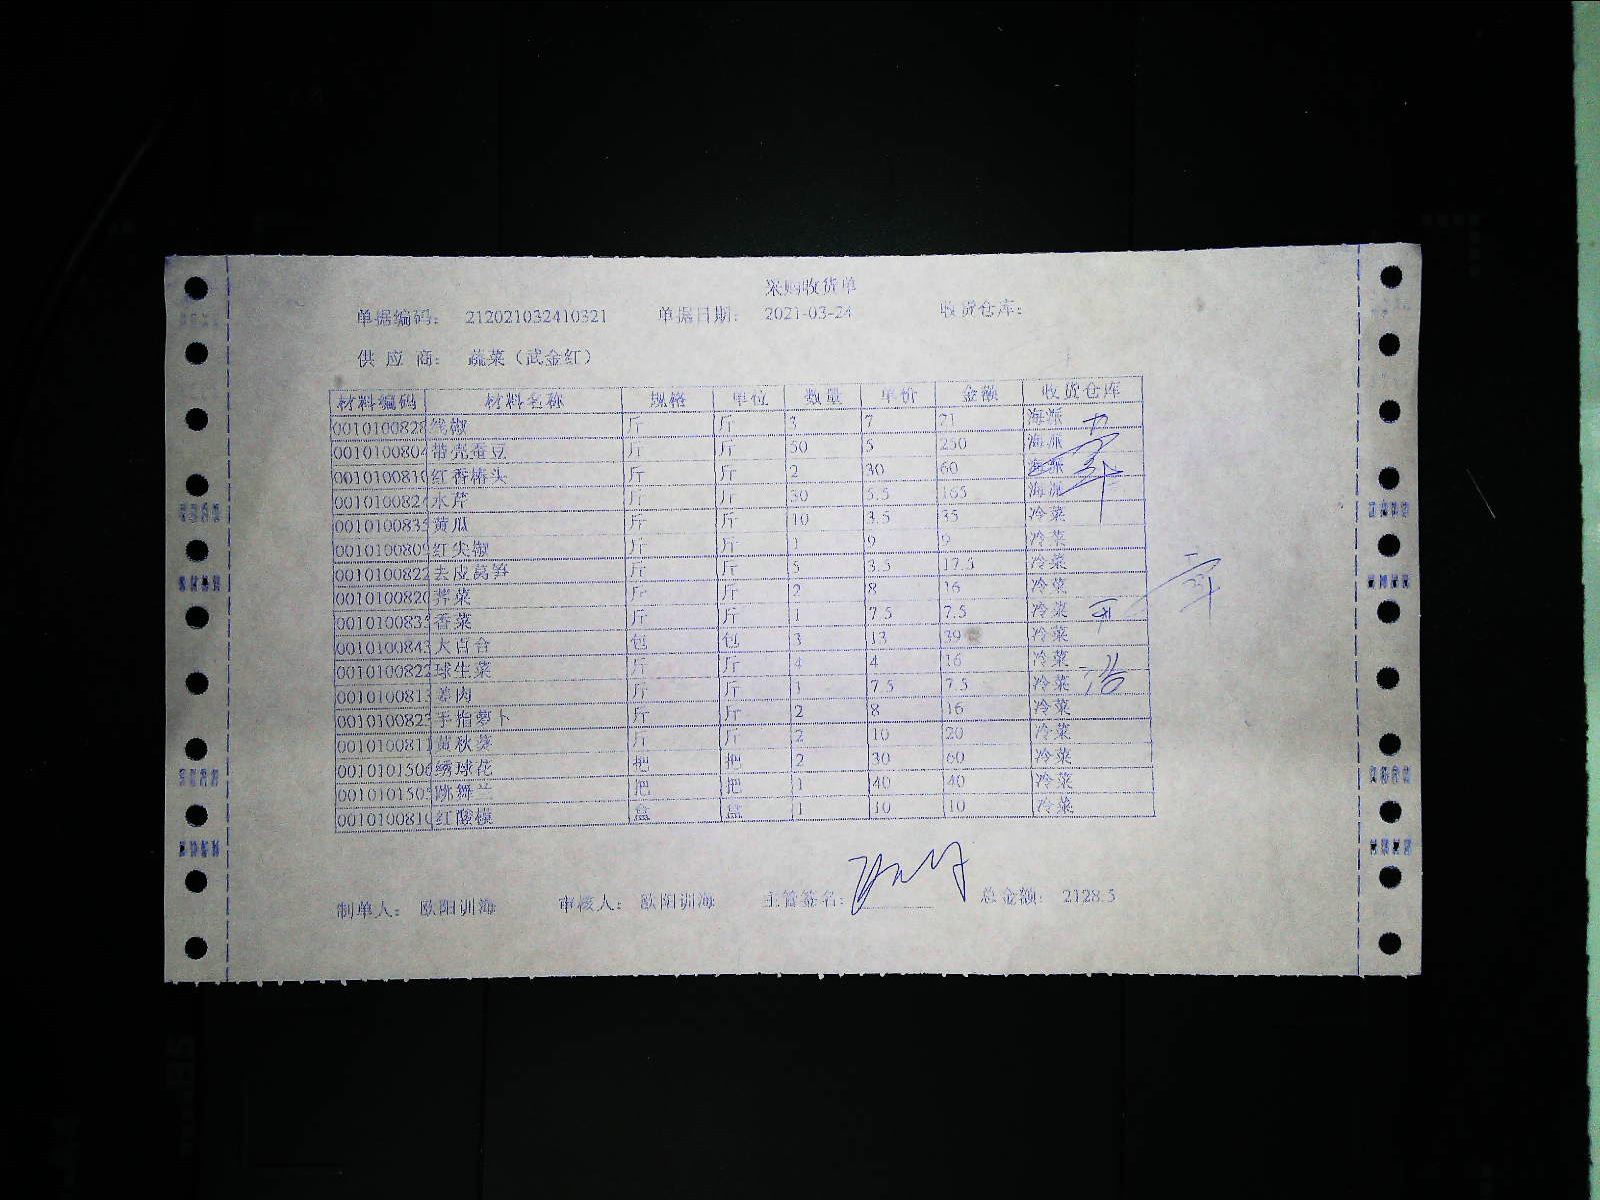 采购收货单
单据编码： 212021032410321 单据日期： 2021-03-24 收货仓库：
供 应 商： 蔬菜（武金红）
材料编码 材料名称 规格 单位 数量 单价 金额 收货仓库
0010100828 线椒 斤 斤 3 7 21 海派
0010100804 带壳蚕豆 斤 斤 50 5 250 海派
001010081 红香椿头 斤 斤 2 30 60 海派
001010082 水芹 斤 斤 30 5.5 165 海派
001010083 黄瓜 斤 斤 10 3.5 35 冷菜
001010080 红尖椒 斤 斤 1 9 9 冷菜
0010100822 去皮莴笋 斤 斤 5 3.5 17.5 冷菜
001010082 荠菜 斤 斤 2 8 16 冷菜
001010083 香菜 斤 斤 1 7.5 7.5 冷菜
001010084 大百合 包 包 3 13 39 冷菜
0010100822 球生菜 斤 斤 4 4 16 冷菜
001010081 姜肉 斤 斤 1 7.5 7.5 冷菜
001010082 手指萝卜 斤 斤 2 8 16 冷菜
0010100811 黄秋葵 斤 斤 2 10 20 冷菜
001010150 绣球花 把 把 2 30 60 冷菜
001010150 跳舞兰 把 把 1 40 40 冷菜
001010081 红酸模 盒 盒 1 10 10 冷菜
制单人： 欧阳训海 审核人： 欧阳训海 主管签名： 总金额： 2128.5